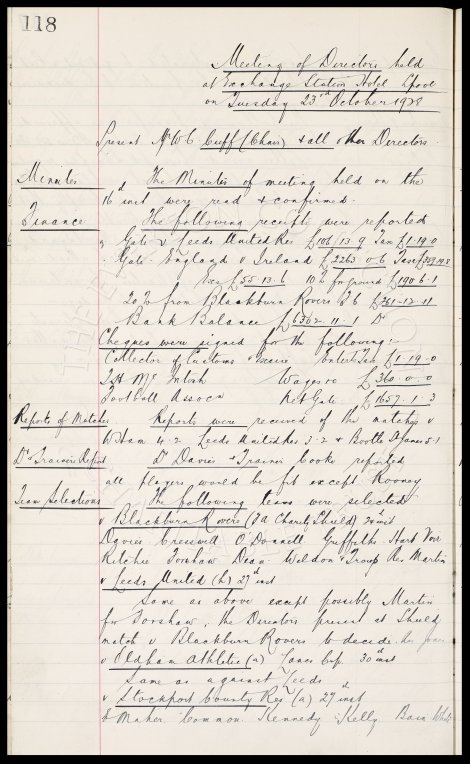 118
Meeting of Directors held
at Exchange Station Hotel Lpool
on Tuesday 23rd October 1928
Present Mr W C Cuff (Chair) & all other Directors.
Minutes The Minutes of meeting held on the
16th inst were read & confirmed.
Finance The following receipts were reported
Gate v Leeds United Res £106.13.9 Tax £1.19.0
Gate England v Ireland £2263.0.6 Tax
Exs £55.13.6 10% for ground £190.6.1
20% from Blackburn Rovers £261-12-11
Bank Balance £6362-11-1 Dr
Cheques were signed for the following:-
Collector of Customs & Excise Entert Tax £1.19.0
Mc Intosh Wages &c £360.0.0
Football Assocn Net Gate £1657.1.3
Reports of Matches Reports were received of the matches v
W Ham 4-2 Leeds United Res 3-2 & Bootle St James 5-1
Dr & Trainers Report Dr Davies & Trainer Cooke reported
all players would be fit except Rooney
Team Selections The following teams were selected
v Blackburn Rovers (Charity Shield) 24th inst
Davies Cresswell O'Donnell Griffiths Hart Virr
Ritchie Forshaw Dean Weldon & Troup Res Martin
v Leeds United (h) 27th inst
Same as above except possibly Martin
for Forshaw, the Directors present at Shield
match v Blackburn Rovers to decide.
v Oldham Athletic (a) Lancs Cup 30th inst
Same as against Leeds
v Stockport County Res (a) 27th inst
Maher Common Kennedy Kelly Bain White